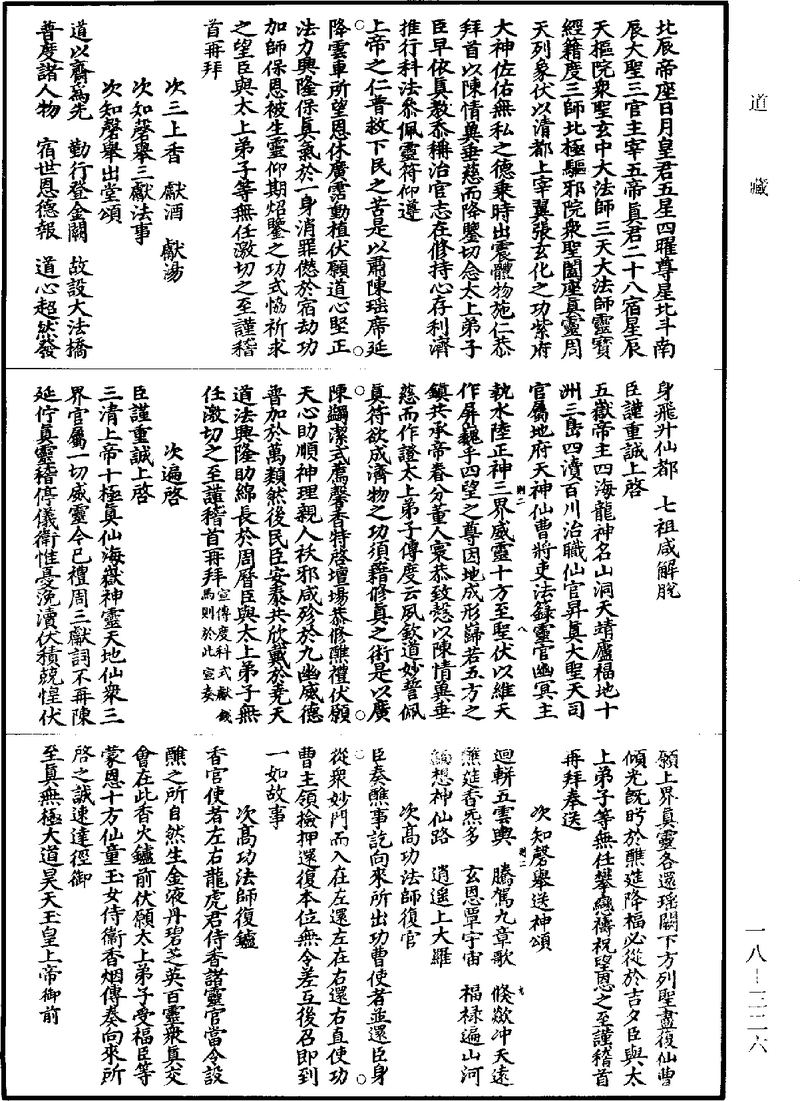 道藏
北辰帝座日月皇君五星四曜尊星北斗南
辰大聖三官主宰五帝真君二十八宿星辰
天樞院衆聖玄中大法師三天大法師靈寶
經籍度三師北極驅邪院衆聖闔座真靈周
天列象伏以清都上宰翼張玄化之功紫府
大神佐佑無私之德乘時出震體物施仁恭
拜首以陳情冀垂慈而降鑒切念太上弟子
臣早依真教忝稱治官志在修持心存利濟
推行科法叅佩靈符仰遵
上帝之仁普救下民之苦是以肅陳瑤席延
降雲車所望恩休廣霑動植伏願道心堅正
法力興隆保真氣於一身消罪愆於宿劫功
加師保恩被生靈仰期炤鑒之功式恊祈求
之望臣與太上弟子等無任激切之至謹稽
首再拜
次三上香 獻酒 獻湯
次知磬舉三獻法事
次知磬舉出堂頌
道以齋為先 勤行登金闕 故設大法橋
普度諸人物 宿世恩德報 道心超然發
身飛升仙都 七祖咸解脫
臣謹重誠上啓
五嶽帝主四海龍神名山洞天靖廬福地十
洲三島四瀆百川治職仙官昇真大聖天司
官屬地府天神仙曹將吏法籙靈官幽冥主
執水陸正神三界威靈十方至聖伏以維天
作屏巍乎四望之尊因地成形巋若五方之
鎮共承帝眷分董人寰恭致慤以陳情冀垂
慈而作證太上弟子傳度云夙欽道妙誓佩
真符欲成濟物之功須藉修真之術是以廣
陳蠲潔式薦馨香特啓壇場恭修醮禮伏願
天心助順神理親人袄邪咸殄於九幽威德
普加於萬類然後民臣安泰共欣戴於堯天
道法興隆助綿長於周曆臣與太上弟子無
任激切之至謹稽首再拜宣傳度科式獻錢馬則於此宣奏
次遍啓
臣謹重誠上啓
三清上帝十極真仙海嶽神靈天地仙衆三
界官屬一切威靈今已禮周三獻詞不再陳
延佇真靈稽停儀衛惟憂浼瀆伏積兢惶伏
願上界真靈各還瑤闕下方列聖盡復仙曹
傾光既眄於醮筵降福必從於吉夕臣與太
上弟子等無任攀戀禱祝望恩之至謹稽首
再拜奉送
次知磬舉送神頌
迴軿五雲輿 騰駕九章歌 倐歘冲天遠
醮筵香炁多 玄恩覃宇宙 福祿遍山河
緬想神仙路 逍遥上大羅
次高功法師復官
臣奏醮事訖向來所出功曹使者並還臣身
從衆妙門而入在左還左在右還右直使功
曹主領撿押還復本位無令差互後召即到
一如故事
次高功法師復鑪
香官使者左右龍虎君侍香諸靈官當令設
醮之所自然生金液丹碧芝英百靈衆真交
會在此香火鑪前伏願太上弟子受福臣等
蒙恩十方仙童玉女侍衛香烟傳奏向來所
啓之誠速達徑御
至真無極大道昊天玉皇上帝御前
一八—三二六